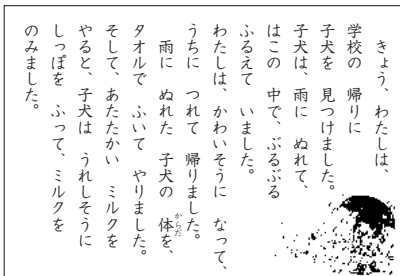 きょう、わたしは、
学校の 帰りに
子犬を 見つけました。
子犬は、雨に ぬれて、
はこの 中で、ぶるぶる
ふるえて いました。
わたしは、かわいそうに なって、
うちに つれて 帰りました。
雨に ぬれた 子犬の 体を、
からだ
タオルで ふいて やりました。
そして、あたたかい ミルクを
やると、子犬は うれしそうに
しっぽを ふって、ミルクを
のみました。